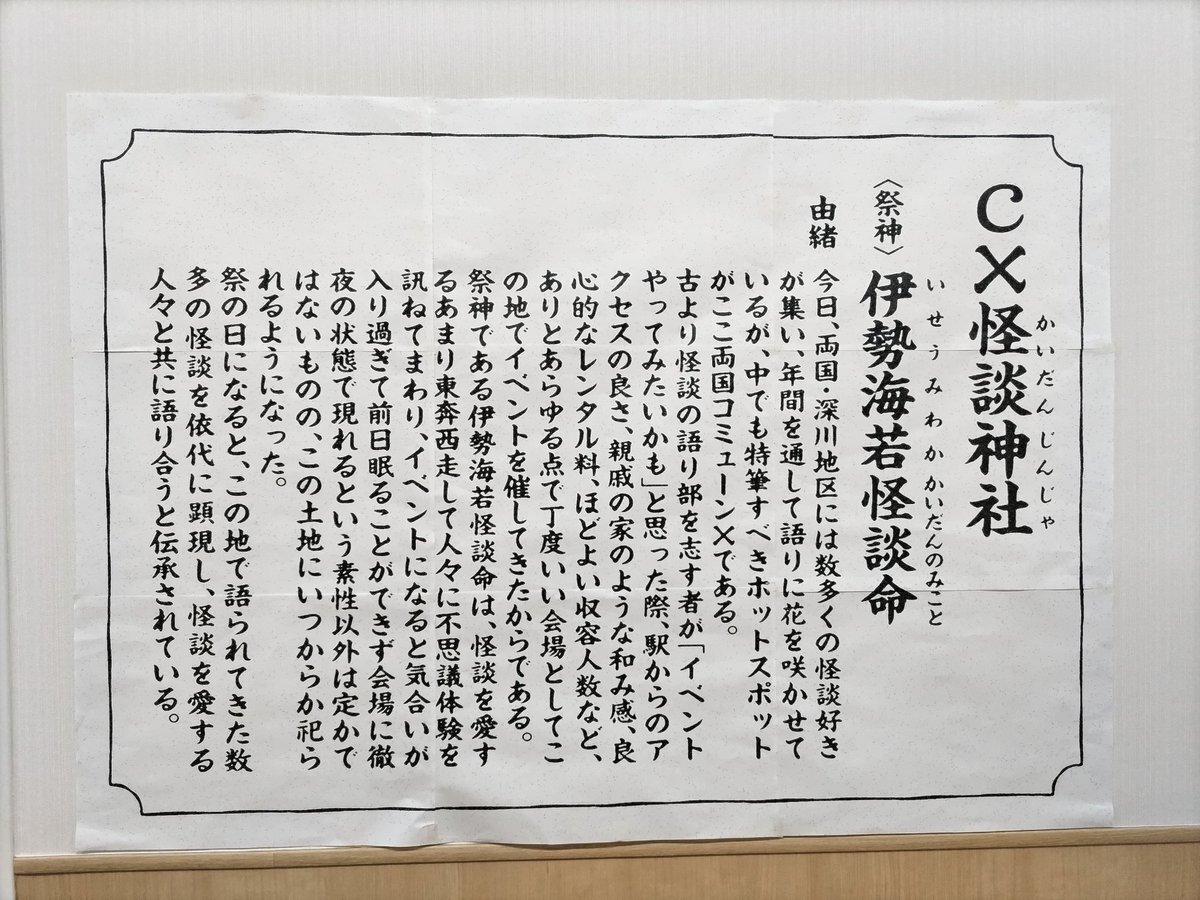 CX怪談神社
かいだんじんじゃ
〈祭神〉伊勢海若怪談命
いせうみわかかいだんのみこと
由緒
今日、両国・深川地区には数多くの怪談好き
が集い、年間を通して語りに花を咲かせて
いるが、中でも特筆すべきホットスポット
がここ両国コミューンXである。
古より怪談の語り部を志す者が「イベント
やってみたいかも」と思った際、駅からのア
クセスの良さ、親戚の家のような和み感、良
心的なレンタル料、ほどよい収容人数など、
ありとあらゆる点で丁度いい会場としてこ
の地でイベントを催してきたからである。
祭神である伊勢海若怪談命は、怪談を愛す
るあまり東奔西走して人々に不思議体験を
訊ねてまわり、イベントになると気合いが
入り過ぎて前日眠ることができず会場に徹
夜の状態で現れるという素性以外は定かで
はないものの、この土地にいつからか祀ら
れるようになった。
祭の日になると、この地で語られてきた数
多の怪談を依代に顕現し、怪談を愛する
人々と共に語り合うと伝承されている。